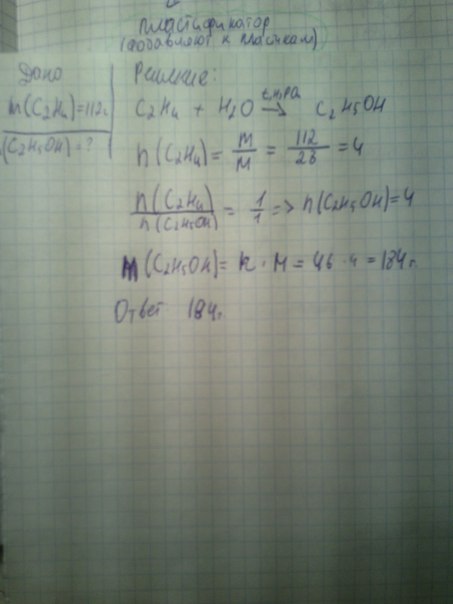 пластификатор
(добавляют к пластикам)
Дано
m(C2H4)=112г
(C2H5OH)=?
Решение:
C2H4 + H2O → C2H5OH
n(C2H4) = m/M = 112/28 = 4
n(C2H4)/n(C2H5OH) = 1/1 => n(C2H5OH)=4
m(C2H5OH)= n · M = 46 · 4 = 184г.
Ответ 184г.